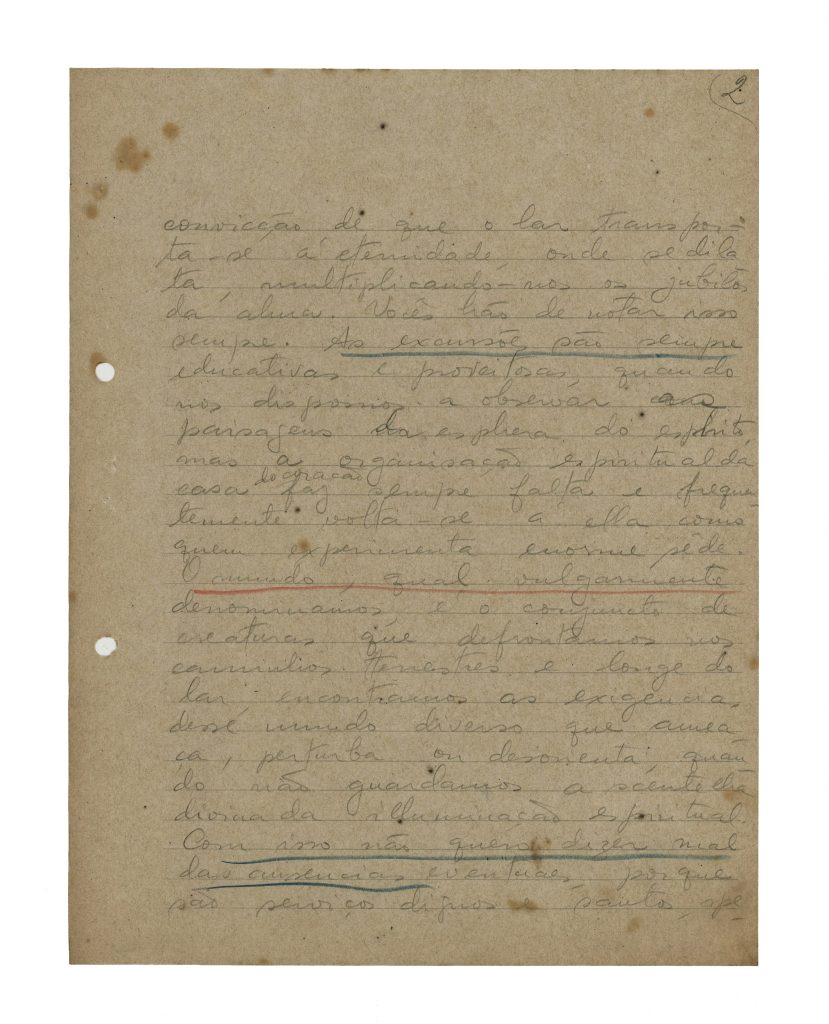 2
convicção de que o lar transpor-
ta-se á eternidade, onde se dila
ta, multiplicando-nos os jubilos
da alma. Vocês hão de notar isso
sempre. As excursões são sempre
educativas e proveitosas, quando
nos dispomos a observar as
paisagens da esphera do espirito,
mas a organisação espiritual da
casa do coração faz sempre falta e frequen
temente volta-se a ella como
quem experimenta enorme sêde.
O mundo, qual vulgarmente
denominamos, é o conjuncto de
creaturas que defrontamos nos
caminhos terrestres e longe do
lar, encontramos as exigencias
desse mundo diverso que amea
ça, perturba ou desorienta, quan
do não guardamos a scentelha
divina da illuminação espiritual.
Com isso não quero dizer mal
das ausencias eventuaes, porque
são serviços dignos e santos, spe-